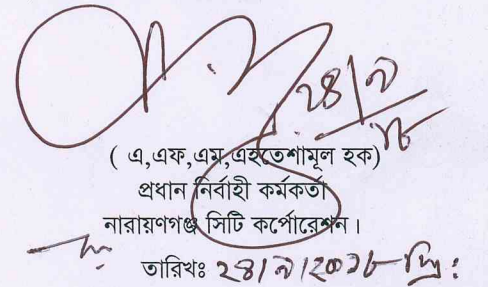 ২৪/৯/১৮
( এ,এফ,এম,এহতেশামূল হক)
প্রধান নির্বাহী কর্মকর্তা
নারায়ণগঞ্জ সিটি কর্পোরেশন।
তারিখঃ ২৪/৯/২০১৮ খ্রি: